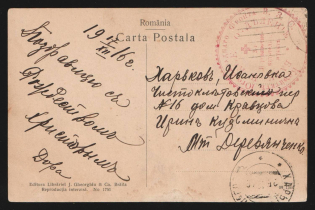 România
Carta Postala
19 17/XII 16 г.
Поздравляю съ
Рождествомъ
Христовымъ
Дора
Харьковъ, Ивановка
Чистоклетовский пер
№16 дом Кравцова
Ирина Кузьминична
Деревянченко
Editura Librăriei J. Gheorghiu & Co. Brăila
Reproducția interzisă.